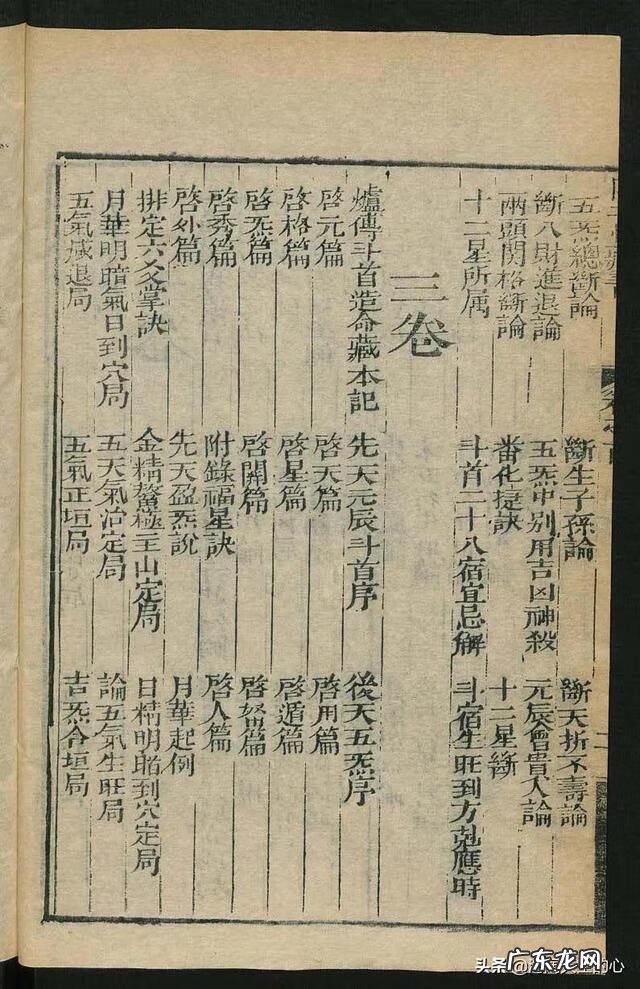 五炁總斷論　斷生子孫論　斷夭折不壽論
斷八財進退論　五炁中别用吉凶神殺　元辰會貴人論
兩頭関格斷論　番化捷訣　十二星斷
十二星所属　斗首二十八宿宜忌解　斗宿生旺到方尅應時
三卷
爐傳斗首造命藏本記　先天元辰斗首序　後天五炁序
啓元篇　啓天篇　啓用篇
啓格篇　啓星篇　啓遁篇
啓炁篇　啓開篇　啓幣篇
啓秀篇　附錄福星訣　啓人篇
啓外篇　先天盈炁說　月華起例
排定六爻掌訣　金精鰲極主山定局　日精明暗到穴定局
月華明暗氣日到穴局　五天氣治定局　論五氣生旺局
五氣减退局　五氣正垣局　吉炁合垣局
二
头条
的心
广东龙网